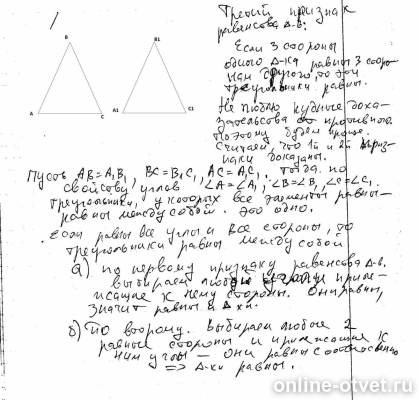 Третий признак
равенства Δ-в.
Если 3 стороны
одного Δ-ка равны 3 сторо-
нам другого, то эти
треугольники равны.
B
B1
A
C
A1
C1
Не люблю нудные дока-
зательства от противного.
Поэтому будем проще.
Считаем, что 1й и 2й приз-
наки доказаны.
Пусть AB=A₁B₁, BC=B₁C₁, AC=A₁C₁. Тогда по
свойству углов ∠A=∠A₁, ∠B=∠B₁, ∠C=∠C₁.
Треугольники, у которых все элементы равны -
равны между собой. Это одно.
Если равны все углы и все стороны, то
треугольники равны между собой
а) по первому признаку равенства Δ-в.
выбираем любой и приле-
жащие к нему стороны. Они равны,
значит равны и Δ-ки.
б) По второму. Выбираем любые 2
равные стороны и прилежащие к
ним углы - они равны соответственно
=> Δ-ки равны.
online-otvet.ru